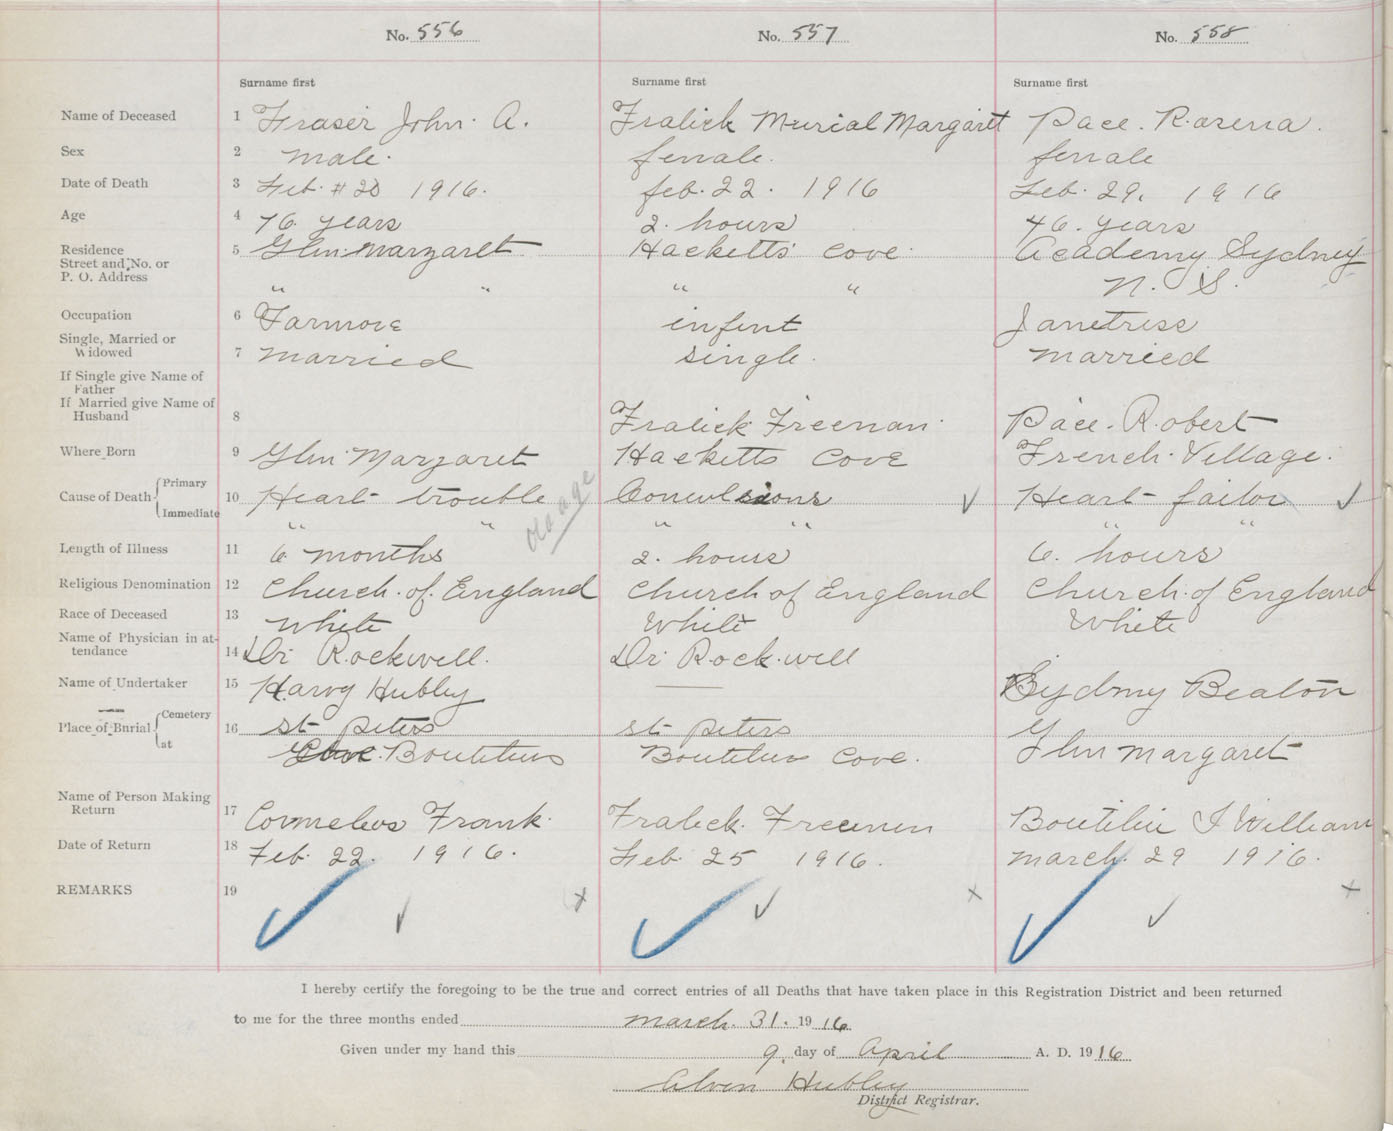 No. 556 No. 557 No. 558
Surname first Surname first Surname first
Name of Deceased 1 Fraser John. A. Fralick Murial Margaret Pace. Rosena.
Sex 2 male. female. female
Date of Death 3 Feb. # 20 1916. feb. 22. 1916 Feb. 29. 1916
Age 4 76 years 2. hours 46. years
Residence 5 Glen Margaret Hacketts Cove. Academy Sydney
Street and No. or
P. O. Address " " " " N. S.
Occupation 6 Farmore infent Janetriss
Single, Married or
Widowed 7 married single. married
If Single give Name of
Father
If Married give Name of
Husband 8 Fralick Freeman. Pace. Robert
Where Born 9 Glen Margaret Hacketts Cove French Village.
Cause of Death Primary 10 Heart trouble Conwlsions Heart failor
old age
Immediate " " " " " "
Length of Illness 11 6 months 2. hours 6. hours
Religious Denomination 12 Church. of. England Church of England Church. of England
Race of Deceased 13 White White White
Name of Physician in at-
tendance 14 Dr Rockwell. Dr Rockwell
Name of Undertaker 15 Harvy Hubley Sydny Beaton
Place of Burial Cemetery 16 st peters st peters
at Boutiliers Boutiliers Cove. Glen Margaret
Name of Person Making
Return 17 Cornelios Frank. Fralick. Freeman Boutilier J William
Date of Return 18 Feb. 22. 1916. Feb. 25 1916. march. 29 1916.
REMARKS 19
I hereby certify the foregoing to be the true and correct entries of all Deaths that have taken place in this Registration District and been returned
to me for the three months ended march. 31. 1916
Given under my hand this 9. day of April A. D. 1916
Alven Hubley
District Registrar.